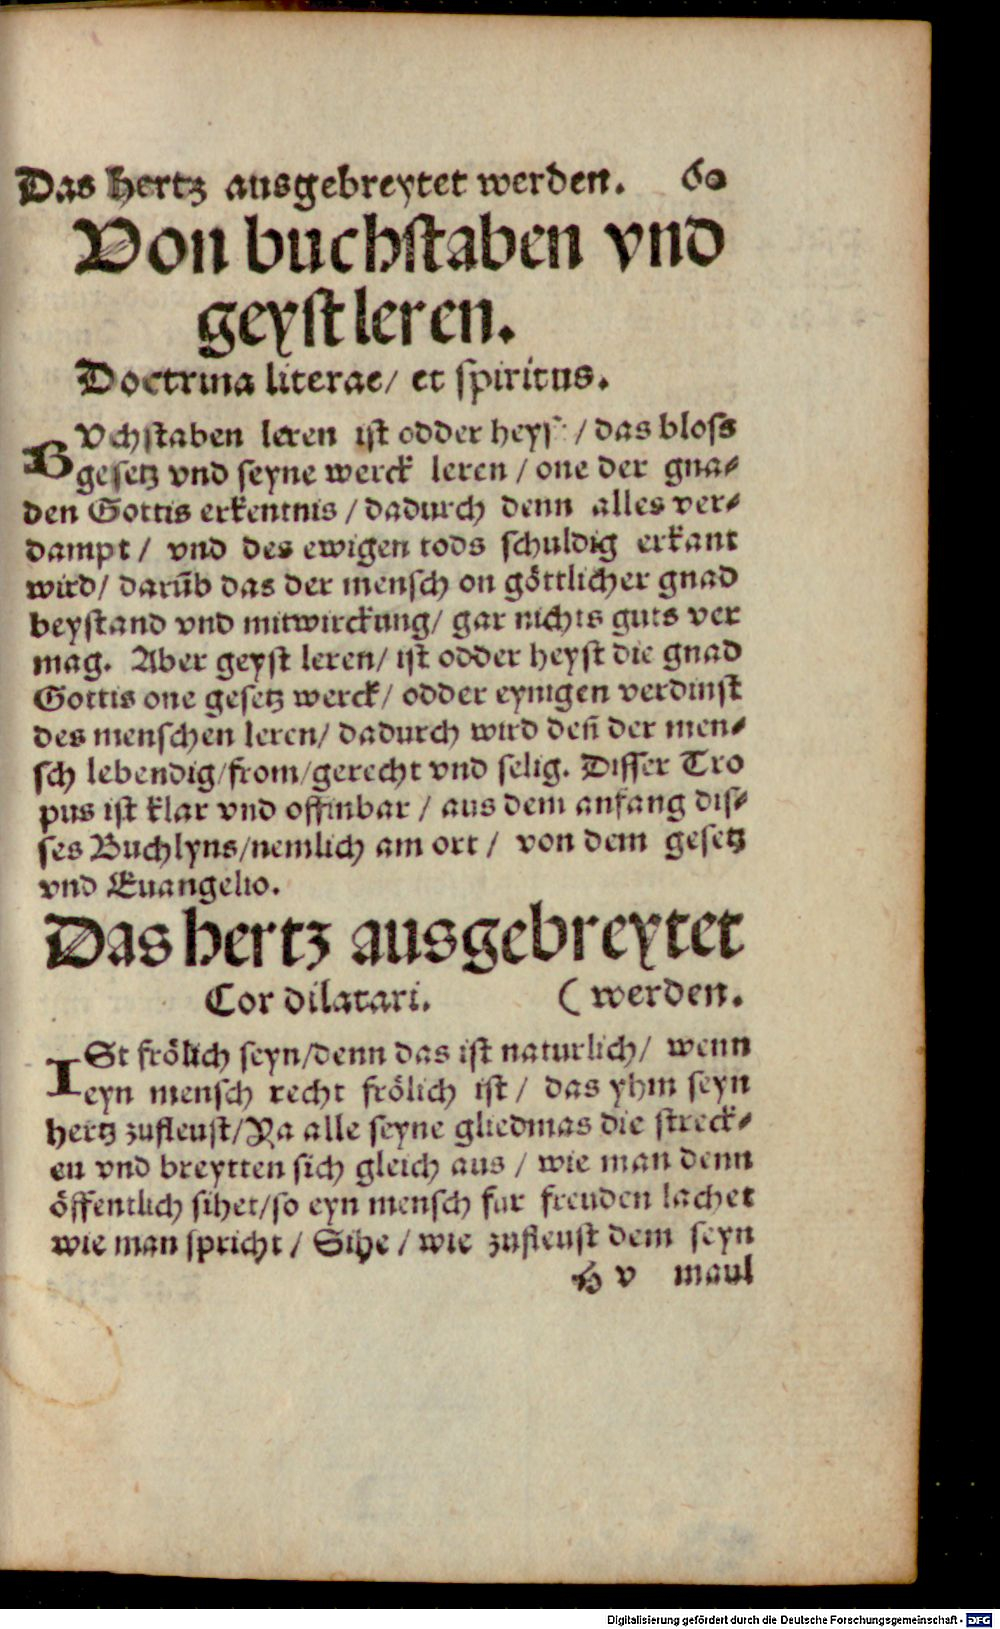 Das hertz ausgebreytet werden. 60
Von buchstaben vnd
geystleren.
Doctrina literae/ et spiritus.
BVchstaben leren ist odder heys /das bloss
gesetz vnd seyne werck leren / one der gna-
den Gottis erkentnis / dadurch denn alles ver-
dampt / vnd des ewigen tods schuldig erkant
wird/ darūb das der mensch on göttlicher gnad
beystand vnd mitwirckung/ gar nichts guts ver
mag. Aber geyst leren/ ist odder heyst die gnad
Gottis one gesetz werck/ odder eynigen verdinst
des menschen leren/ dadurch wird den̄ der men-
sch lebendig/from/gerecht vnd selig. Disser Tro
pus ist klar vnd offinbar / aus dem anfang dis-
ses Buchlyns/nemlich am ort / von dem gesetz
vnd Euangelio.
Das hertz ausgebreytet
Cor dilatari. ( werden.
ISt frölich seyn/denn das ist naturlich/ wenn
eyn mensch recht frölich ist / das yhm seyn
hertz zufleust/Ya alle seyne gliedmas die streck-
en vnd breytten sich gleich aus / wie man denn
öffentlich sihet/so eyn mensch fur freuden lachet
wie man spricht / Sihe / wie zufleust dem seyn
H v maul
Digitalisierung gefördert durch die Deutsche Forschungsgemeinschaft - DFG